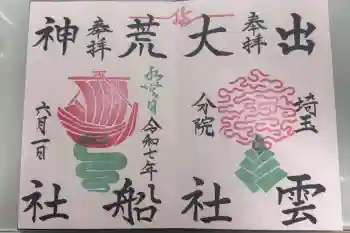 出雲
奉拝
埼玉
分院
大社
荒船
奉拝
令和七年
六月一日
神社